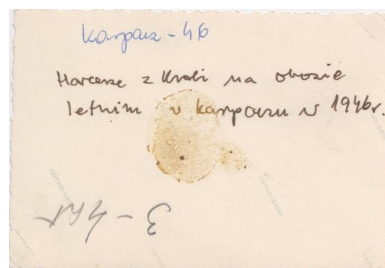 Karpacz - 46
Harcerze z Krobi na obozie
letnim w Karpaczu w 1946 r.